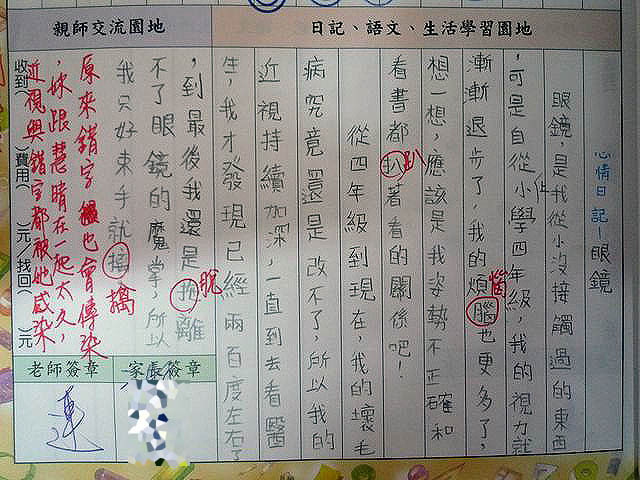 親師交流園地
日記、語文、生活學習園地
心情日記－眼鏡
眼鏡,是我從小沒接觸過的東西
,可是自從小學四年級,我的視力就
漸漸退步了 我的煩腦也更多了,
惱
想一想,應該是我姿勢不正確和
看書都扒著看的關係吧!
趴
從四年級到現在,我的壞毛
病究竟還是改不了,所以我的
近視持續加深,一直到去看醫
生,我才發現已經兩百度左右了
,到最後我還是拖離
脫
不了眼鏡的魔掌,所以
我只好束手就
擒
原來錯字 也會傳染
,妹跟慧晴在一起太久,
近視與錯字都被她感染
收到( )費用( )元,找回( )元
家長簽章
老師簽章
連